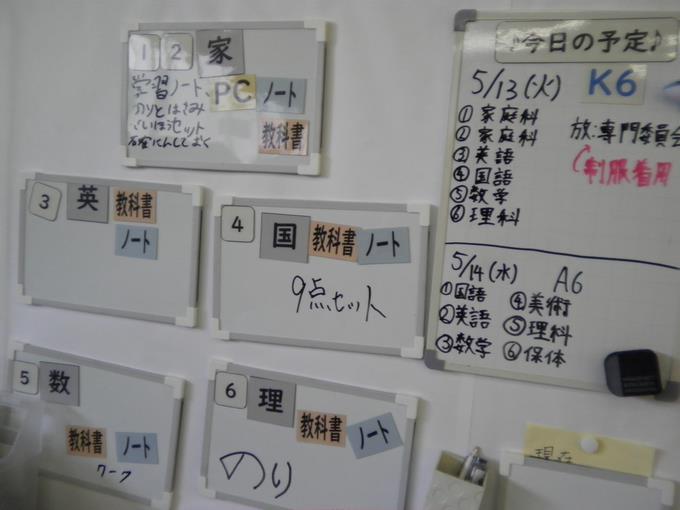 1 2 家
学習ノート PC ノート
のりとはさみ
さいほうセット 教科書
3 英 教科書
ノート
4 国 教科書 ノート
9点セット
5 数
教科書 ノート
ワーク
6 理
教科書 ノート
のり
♪今日の予定♪
5/13(火) K6
①家庭科
②家庭科 放:専門委員会
③英語 制服着用
④国語
⑤数学
⑥理科
5/14(水) A6
①国語 ④美術
②英語 ⑤理科
③数学 ⑥保体
現在